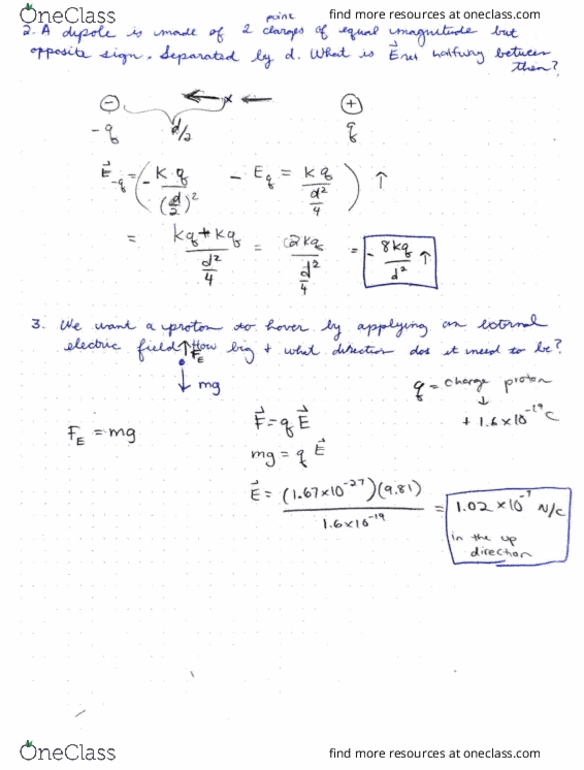 OneClass find more resources at oneclass.com
point
2. A dipole is made of 2 charges of equal magnitude but
opposite sign. Separated by d. What is E⃗net halfway between
them?
− x +
-q d/2 q
E⃗-q = (- k q / (d/2)² - Eq = kq / (d²/4)) ↑
= kq + kq / (d²/4) = (2kq / (d²/4) = - 8kq / d² ↑
3. We want a proton to hover by applying an external
electric field. How big + what direction does it need to be?
FE
mg
q = charge proton
↓
+ 1.6 × 10⁻¹⁹ C
FE = mg
F⃗ = q E⃗
mg = q E⃗
E⃗ = (1.67×10⁻²⁷)(9.81) / 1.6×10⁻¹⁹ = 1.02 × 10⁻⁷ N/C
in the up
direction
OneClass find more resources at oneclass.com